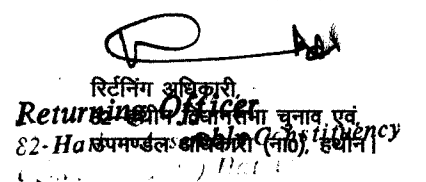 रिर्टनिंग अधिकारी,
Returning Officer
82- हथीन विधानसभा चुनाव एवं
82-Ha Constituency
उपमण्डल अधिकारी (ना0), हथीन।